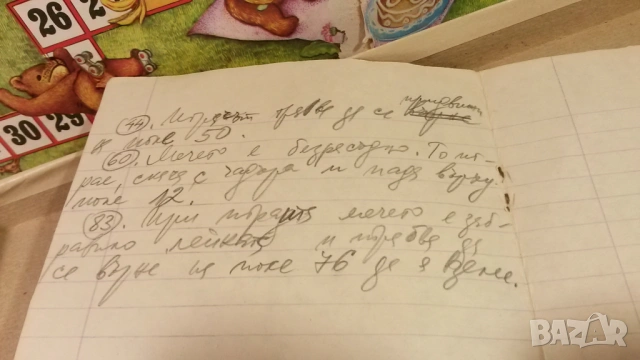 26
30
29
(44). Играчът трябва да се придвижи
на поле 50.
(60). Мечето е безразсъдно. То иг-
рае, скача с чадъра и пада върху
поле 12.
(83). При играта мечето е заб-
равило лейката и трябва да
се върне на поле 76 да я вземе.
BAZAR